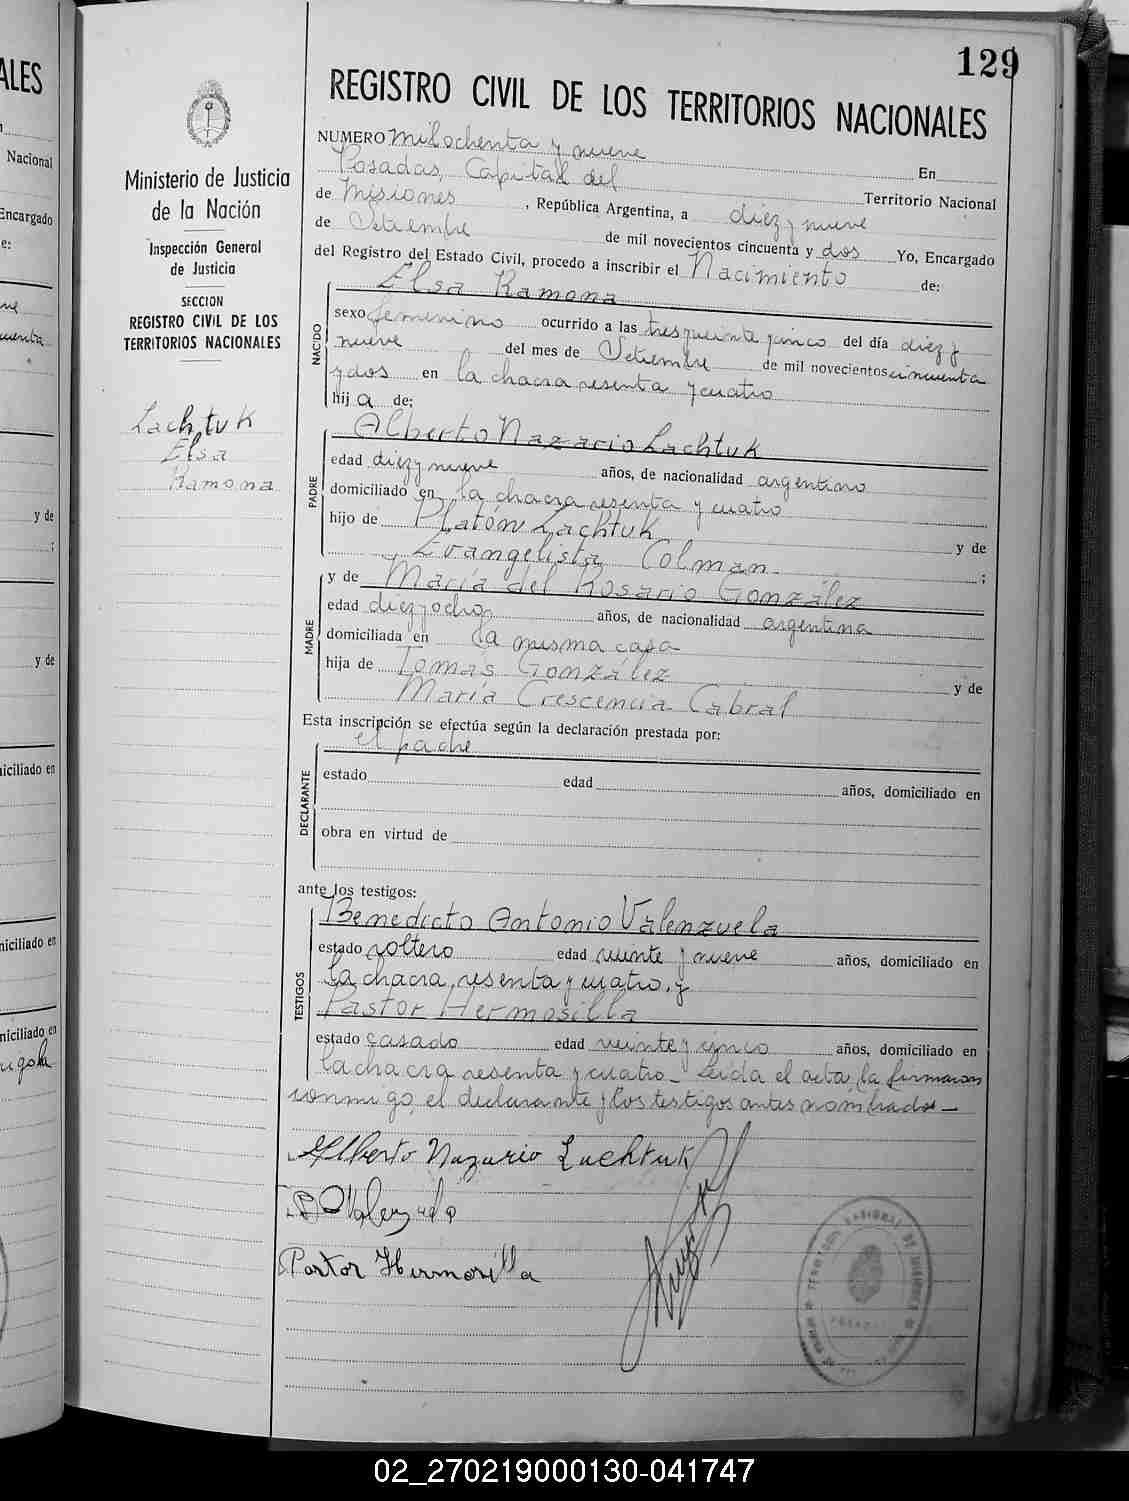 129
REGISTRO CIVIL DE LOS TERRITORIOS NACIONALES
Ministerio de Justicia
de la Nación
Inspección General
de Justicia
SECCION
REGISTRO CIVIL DE LOS
TERRITORIOS NACIONALES
Lachtuk
Elsa
Ramona
NUMERO Milochenta y nueve En
Posadas, Capital del Territorio Nacional
de Misiones, República Argentina, a diez y nueve
de Setiembre de mil novecientos cincuenta y dos Yo, Encargado
del Registro del Estado Civil, procedo a inscribir el Nacimiento de:
Elsa Ramona
NACIDO
sexo femenino ocurrido a las tres y veinte y cinco del día diez y
nueve del mes de Setiembre de mil novecientos cincuenta
y dos en la chacra sesenta y cuatro
hij a de:
Alberto Nazario Lachtuk
PADRE
edad diez y nueve años, de nacionalidad argentino
domiciliado en la chacra sesenta y cuatro
hijo de Platón Lachtuk y de
Evangelista Colman ;
y de María del Rosario González
MADRE
edad diez y ocho años, de nacionalidad argentina
domiciliada en la misma casa
hija de Tomás González y de
María Crescencia Cabral
Esta inscripción se efectúa según la declaración prestada por:
el padre
DECLARANTE
estado edad años, domiciliado en
obra en virtud de
ante los testigos:
Benedicto Antonio Valenzuela
TESTIGOS
estado soltero edad veinte y nueve años, domiciliado en
la chacra sesenta y cuatro, y
Pastor Hermosilla
estado casado edad veinte y cinco años, domiciliado en
la chacra sesenta y cuatro. Leída el acta, la firmaron
conmigo, el declarante y los testigos antes nombrados
Alberto Nazario Lachtuk
Valenzuela
Pastor Hermosilla
ALES
Nacional
Encargado
e:
y de
;
y de
iciliado en
niciliado en
niciliado en
02_270219000130-041747